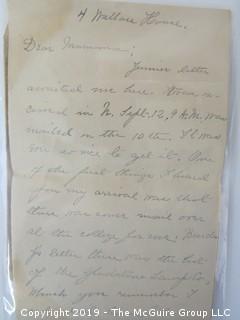 4 Wallace House.
Dear Mamma:
Junior letter
awaited me here. It was re-
ceived in N. Sept. 12, 9 A.M. was
mailed on the 10th. It was
so nice to get it. One
of the first things I heard
on my arrival was that
there was some mail over
at the college for me. Besides
Jo letter there was the list
of the Gladstone Lamp Co,
which you remember I
Copyright 2019 - The McGuire Group, LLC